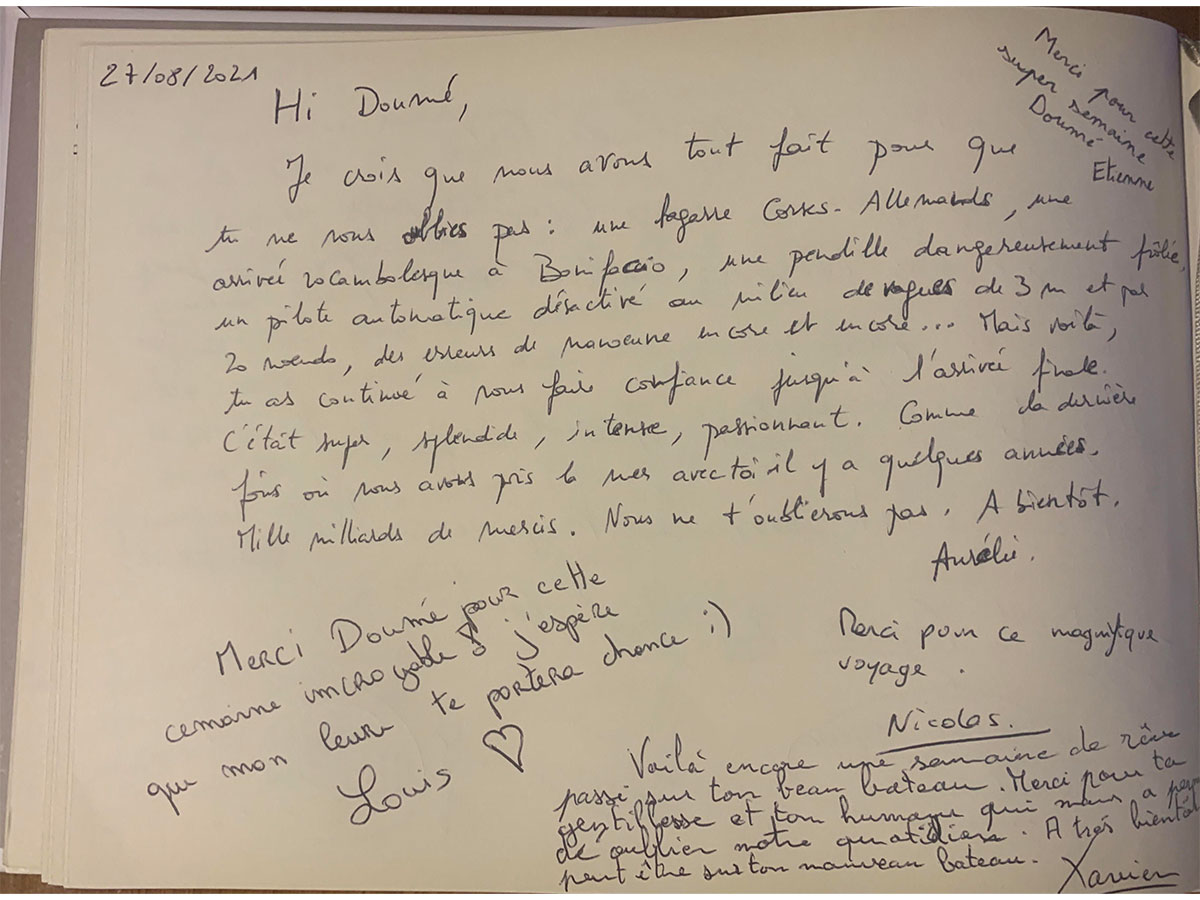 27/08/2021
Hi Doumé,
Merci pour cette
super semaine
Doumé
Etienne
Je crois que nous avons tout fait pour que
tu ne nous oublies pas : une bagarre Corses-Allemands, une
arrivée rocambolesque à Bonifacio, une pendille dangereusement frôlée,
un pilote automatique désactivé au milieu de vagues de 3 m et par
20 noeuds, des erreurs de manoeuvre encore et encore... Mais voilà,
tu as continué à nous faire confiance jusqu'à l'arrivée finale.
C'était super, splendide, intense, passionnant. Comme la dernière
fois où nous avons pris la mer avec toi il y a quelques années.
Mille milliards de mercis. Nous ne t'oublierons pas. A bientôt.
Aurélie.
Merci Doumé pour cette
cemaine incroyable & j'espère
que mon leurre te portera chance :)
Louis ♡
Merci pour ce magnifique
voyage.
Nicolas.
Voilà encore une semaine de rêve
passé sur ton beau bateau. Merci pour ta
gentillesse et ton humour qui nous a
de oublier notre quotidien. A très bientôt
peut être sur ton nouveau bateau. Xavier